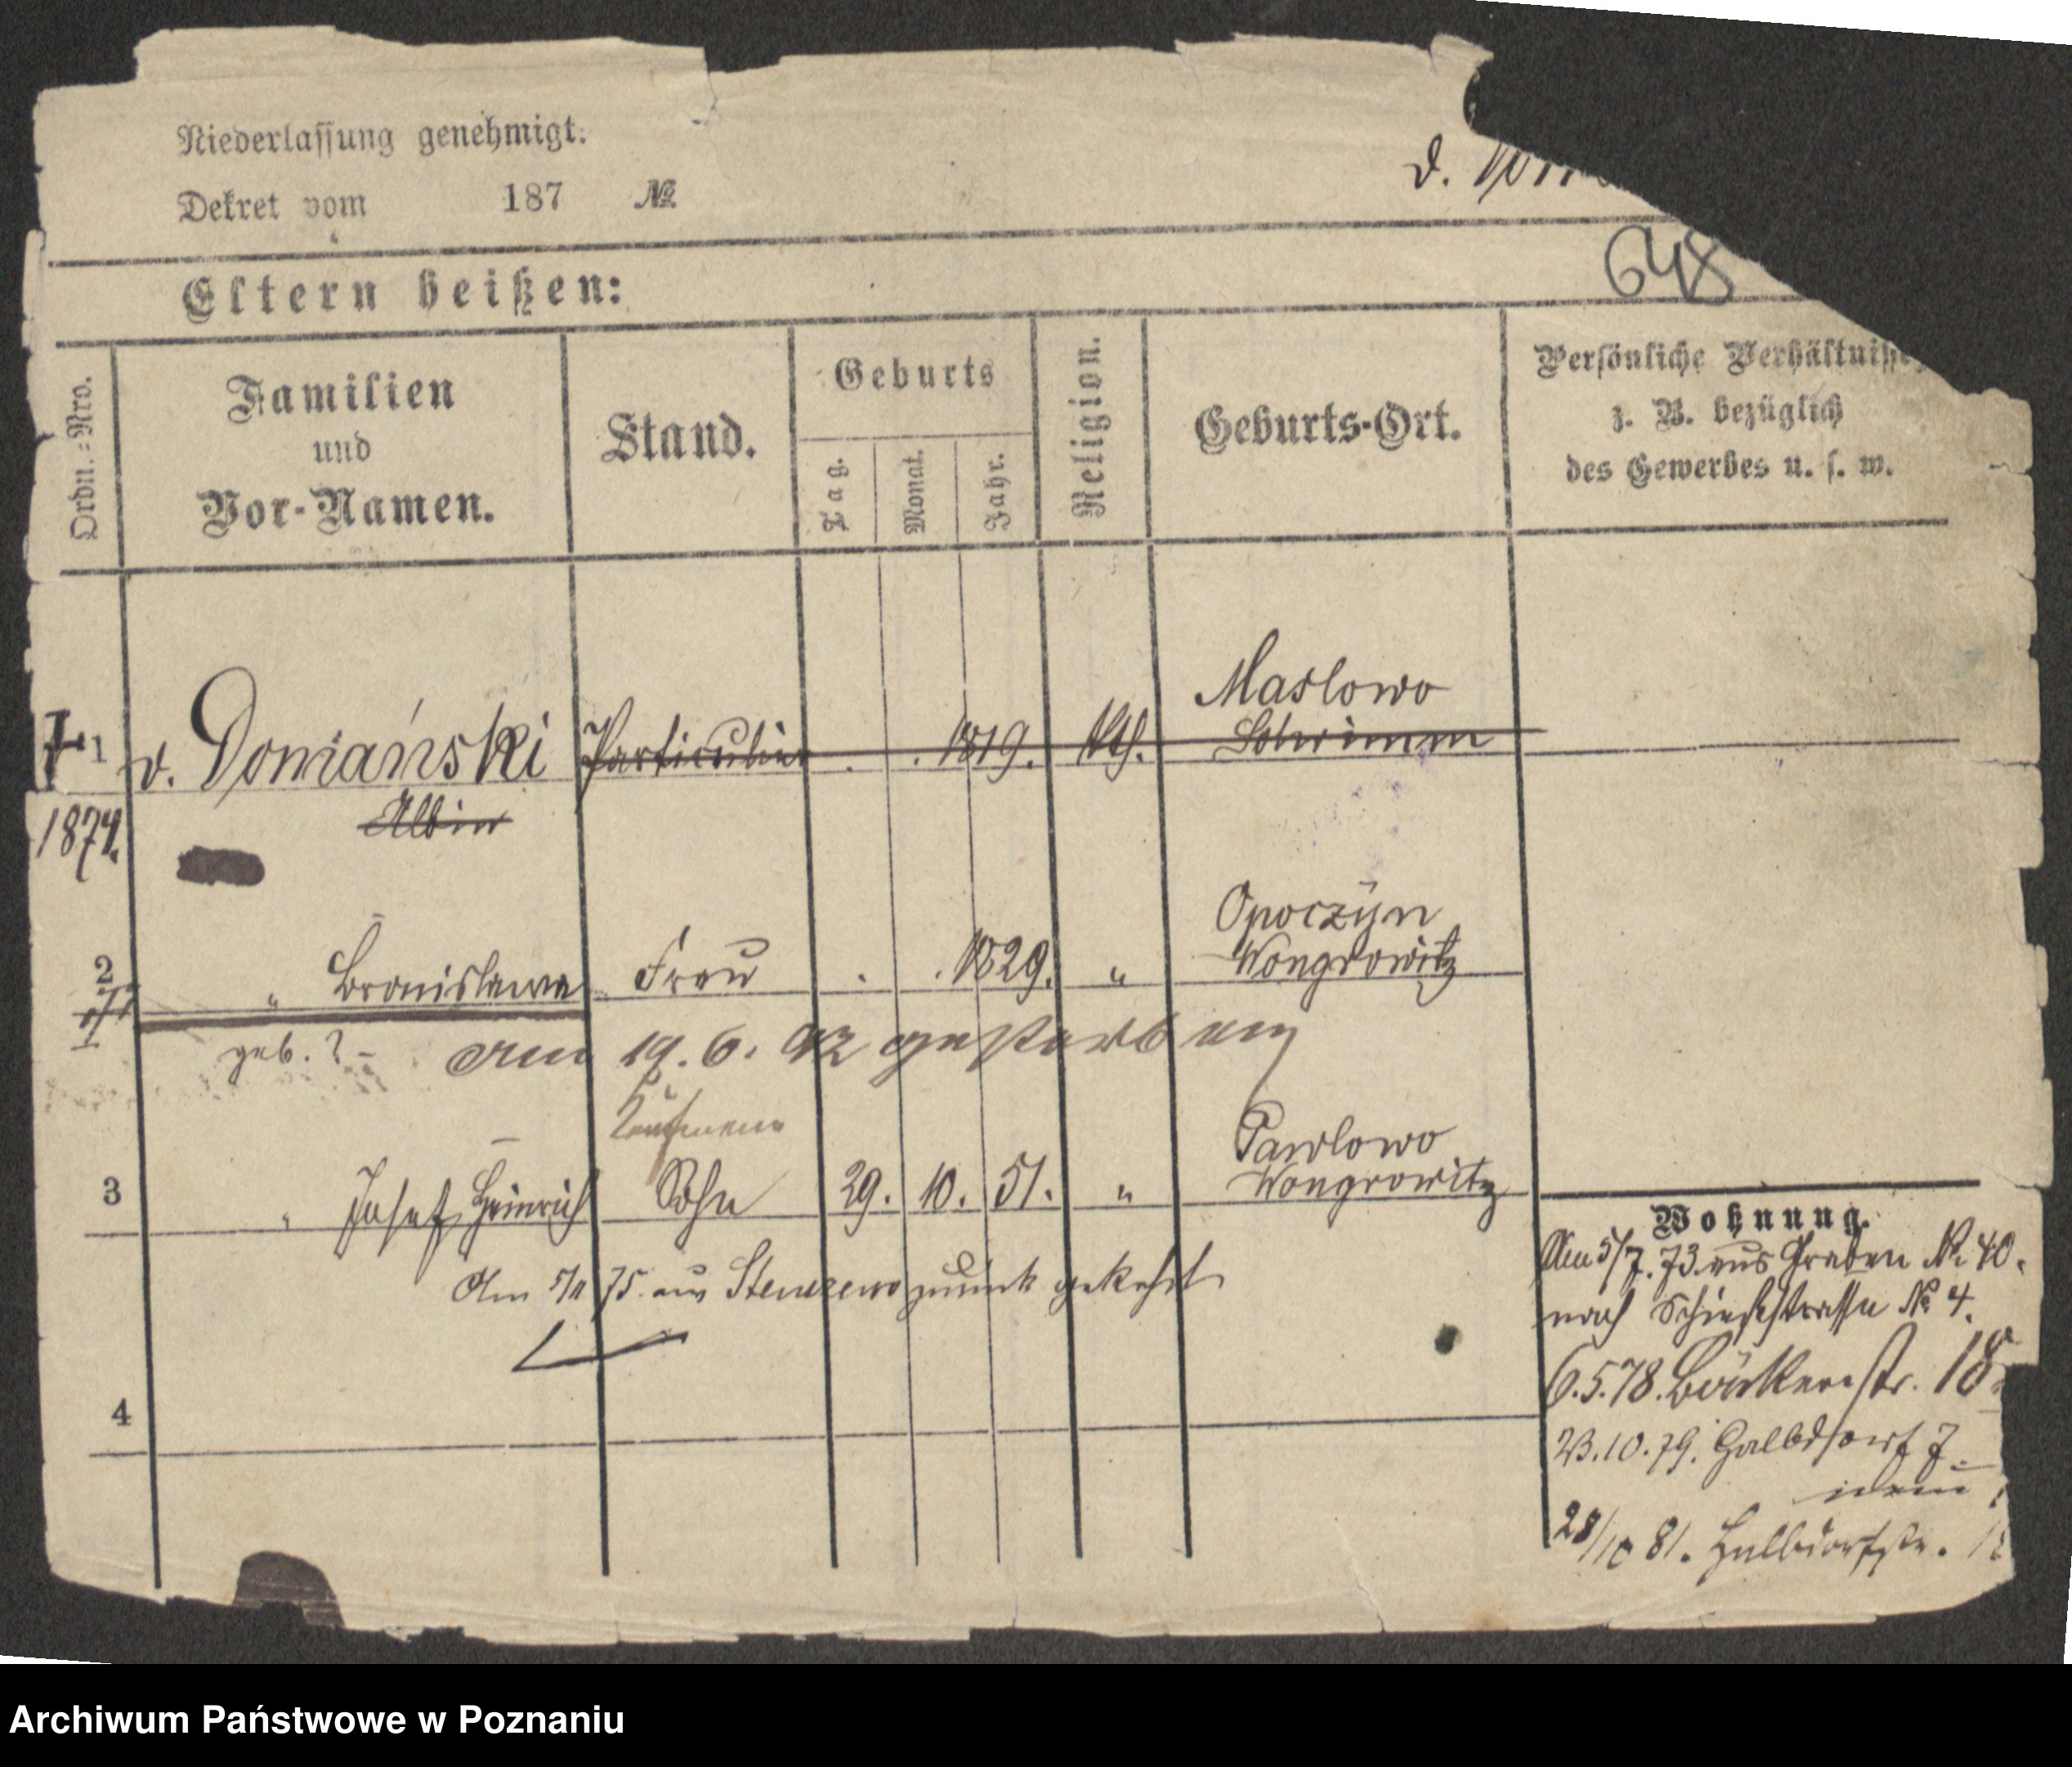 Niederlassung genehmigt.
Dekret vom 187 №
648
Eltern heißen:
Ordn.=Nro.
Familien
und
Vor-Namen.
Stand.
Geburts
Tag.
Monat.
Jahr.
Religion.
Geburts-Ort.
Persönliche Verhältnisse
z. B. bezüglich
des Gewerbes u. s. w.
Maslowo
1 v. Domański Particulier . . 1819. kth. Schrimm
Albin
1874.
Opoczyn
2 " Bronislawa Frau . . 1829. " Wongrowitz
geb. ? - Am 19. 6. 92 gestorben
Kaufmann
Pawlowo
3 " Josef Heinrich Sohn 29. 10. 51. " Wongrowitz
Am 5/11 75. aus zurück gekehrt
4
Wohnung.
Am 5/7. 73. aus Graben № 40.
nach Schießstrasse № 4.
6.5.78. Bäckerstr. 18
23.10.79. Halbdorf 7
28/10 81. Halbdorfstr.
Archiwum Państwowe w Poznaniu